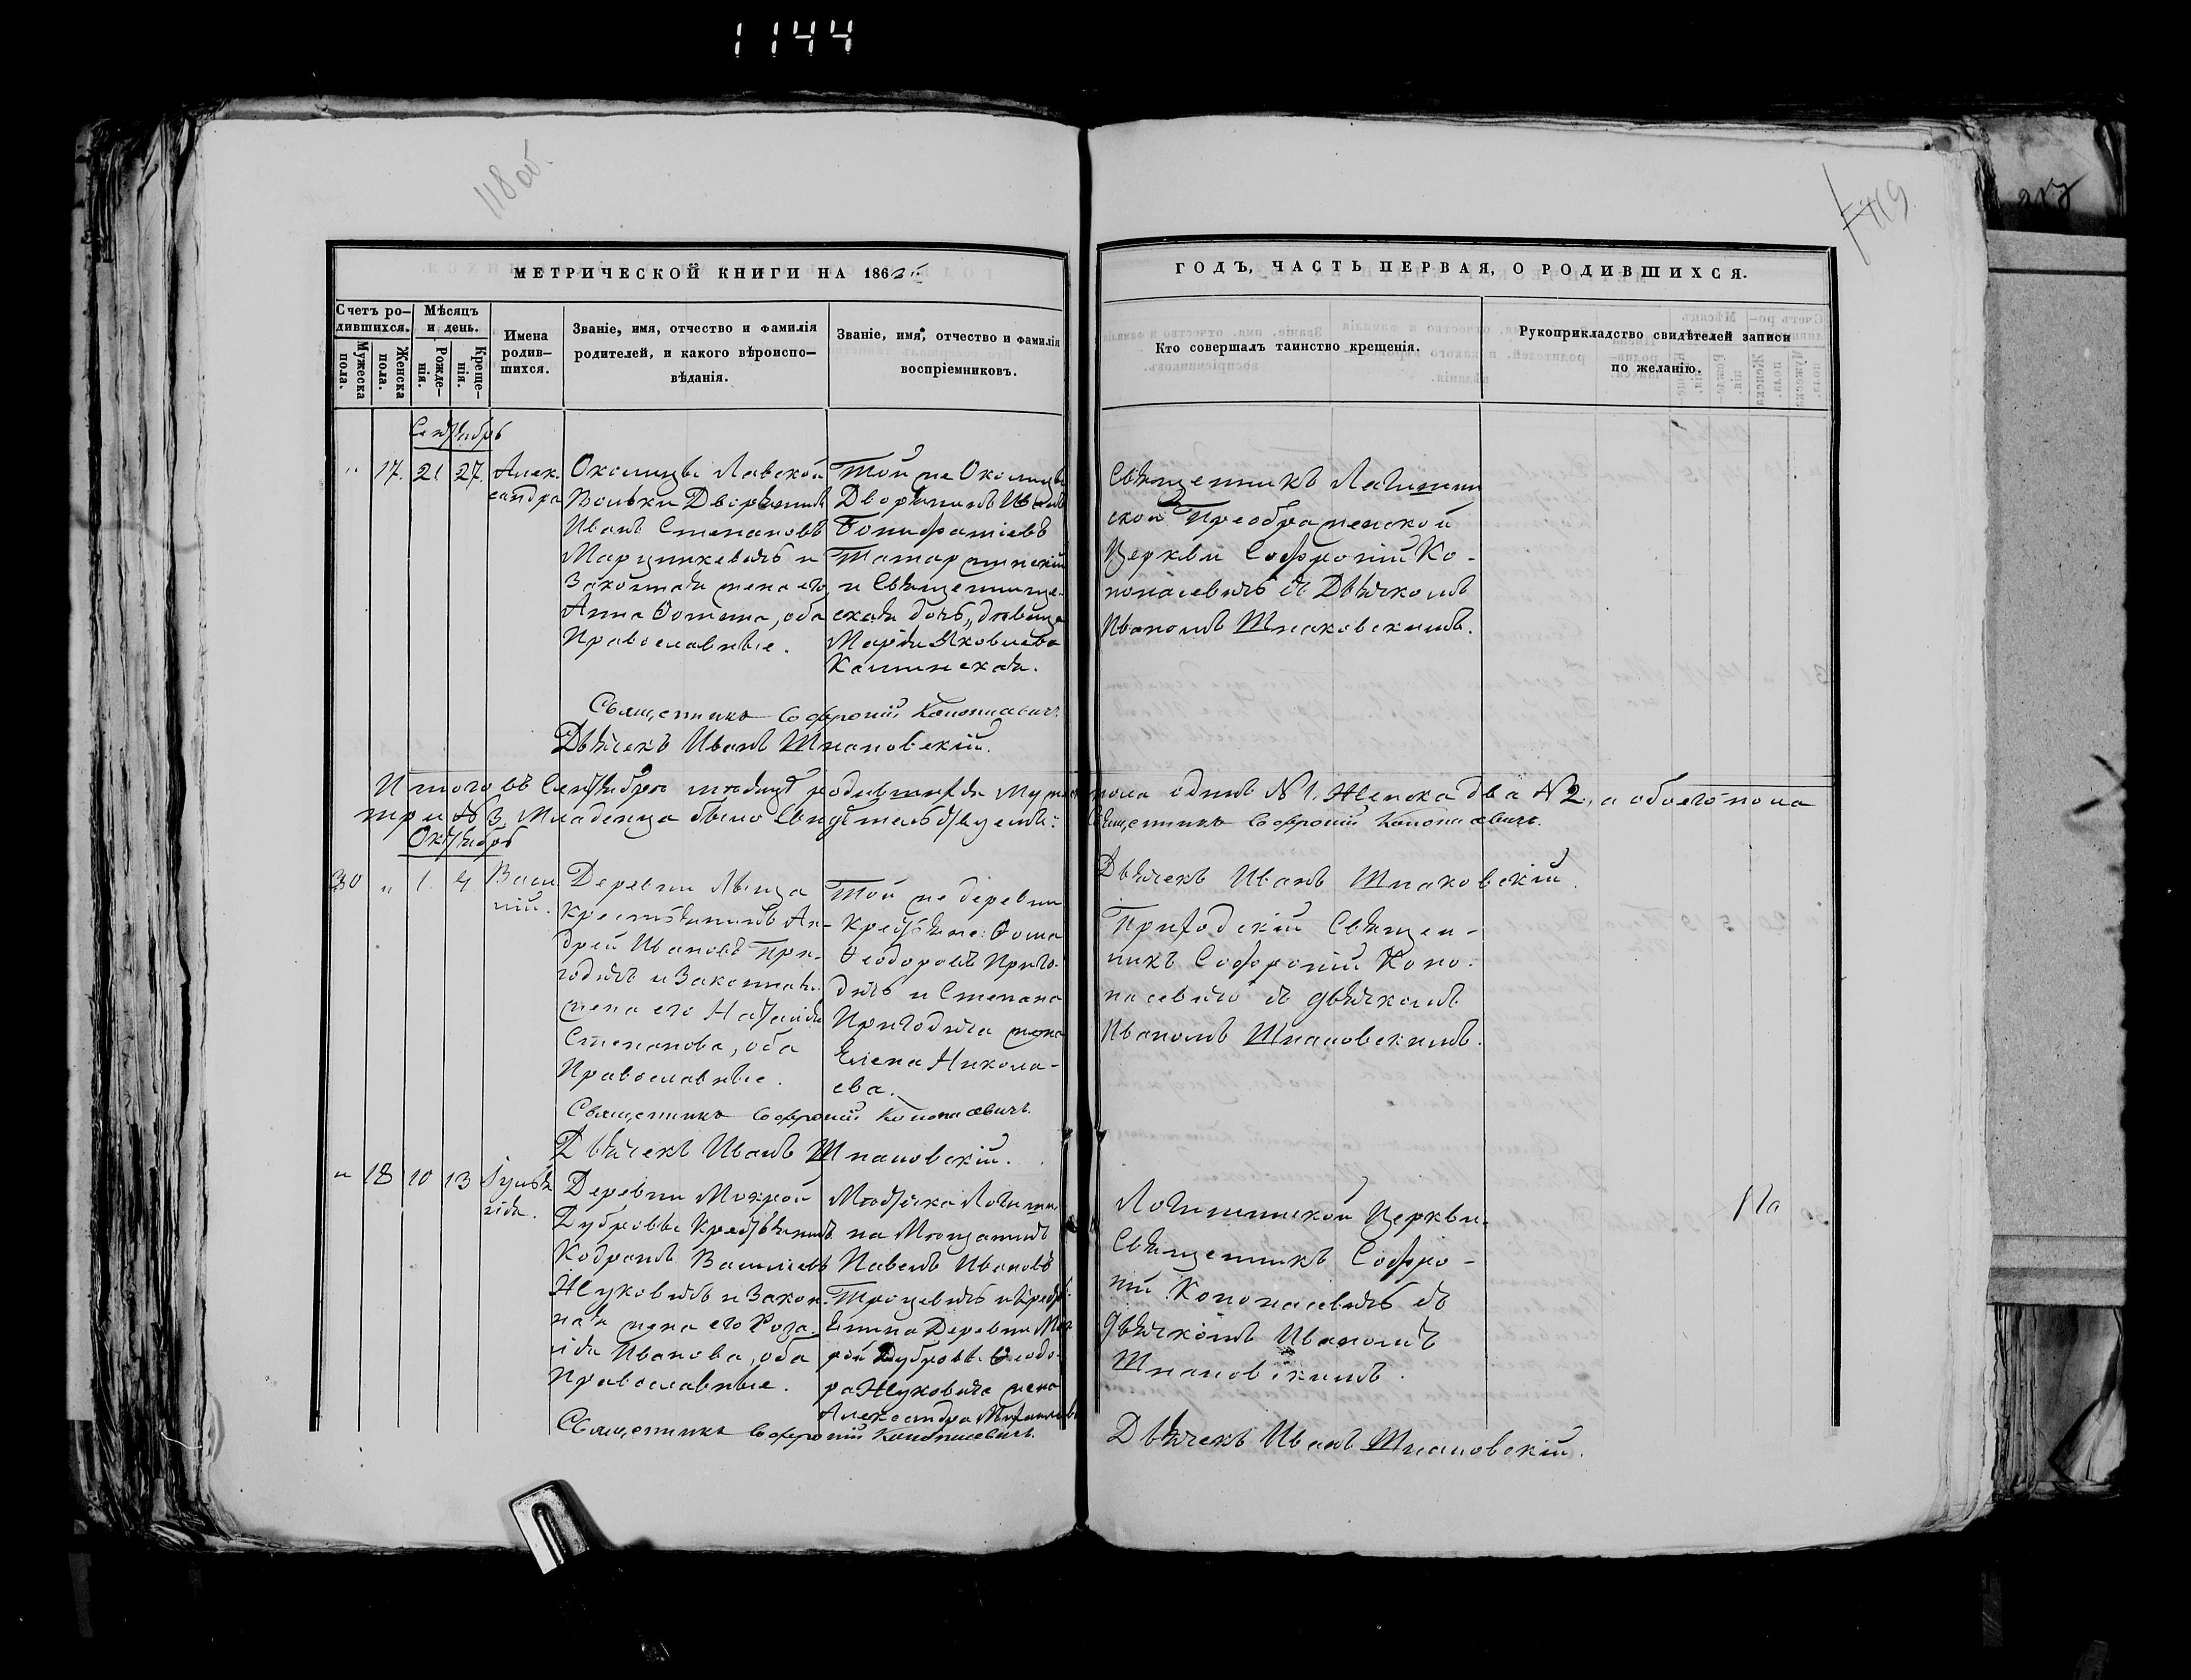 1144
118 об.
119
МЕТРИЧЕСКОЙ КНИГИ НА 186
ГОДЪ, ЧАСТЬ ПЕРВАЯ, О РОДИВШИХСЯ.
Счетъ ро-
дившихся.
Мужеска
пола.
Женска
пола.
Мѣсяцъ
и день.
Рожде-
нія.
Креще-
нія.
Имена
родив-
шихся.
Званіе, имя, отчество и фамилія
родителей, и какого вѣроиспо-
вѣданія.
Званіе, имя, отчество и фамилія
воспріемниковъ.
Кто совершалъ таинство крещенія.
Рукоприкладство свидѣтелей записи
по желанію.
Сентябрь
" 17. 21 27.
Алек-
сандра
Околицы Лавской
Вольки Дворянинъ
Иванъ Степановъ
Марцинкевичъ и
Законная жена его
Анна Фомина, оба
Православные.
Той же Околицы
Дворянинъ Иванъ
Бонифатіевъ
и Священниче-
ская дочь, дѣвица
Марія Яковлева
Каминская.
Священникъ
ской Преображенской
Церкви Софроній Ко-
нопасевичъ съ Дьячкомъ
Иваномъ Шпаковскимъ.
Священникъ Софроній Конопасевичъ
Дьячекъ Иванъ Шпаковскій.
Итого въ Сентябрѣ мѣсяцѣ родившихся Муж. пола одинъ № 1, Женска два № 2, а обоего пола
три № 3. Младенца было
Священникъ Софроній Конопасевичъ.
Октябрь
Дьячекъ Иванъ Шпаковскій.
30 " 1. 4
Васи-
лій.
Деревни
крестьянинъ Ан-
дрей Ивановъ При-
годичъ и Законная
жена его Наталія
Степанова, оба
Православные.
Той же деревни
Фома
Ѳеодоровъ Приго-
дичъ и Степана
Пригодича жена
Елена Никола-
ева.
Приходскій Священ-
никъ Софроній Коно-
пасевичъ съ дьячкомъ
Иваномъ Шпаковскимъ.
Священникъ Софроній Конопасевичъ.
Дьячекъ Иванъ Шпаковскій.
" 18 10 13
Іулія-
нія.
Деревни Мокрой
Дубровы Крестьянинъ
Кодратъ Васильевъ
Жуковичъ и Закон-
ная жена его Роза-
лія Иванова, оба
Православные.
Мѣстечка Логиши-
на Мѣщанинъ
Павелъ Ивановъ
Троцевичъ и Крест-
янина Деревни Мок-
рой Дубровы Ѳеодо-
ра Жуковича жена
Александра
Логишинской Церкви
Священникъ Софро-
ній Конопасевичъ съ
дьячкомъ Иваномъ
Шпаковскимъ.
Священникъ Софроній Конопасевичъ.
Дьячекъ Иванъ Шпаковскій.